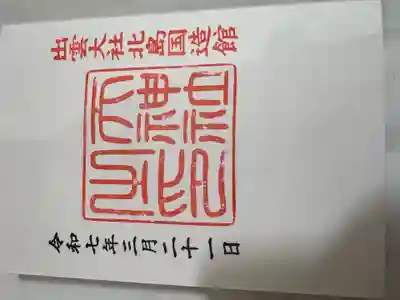 出雲大社北島国造館
令和七年三月二十一日